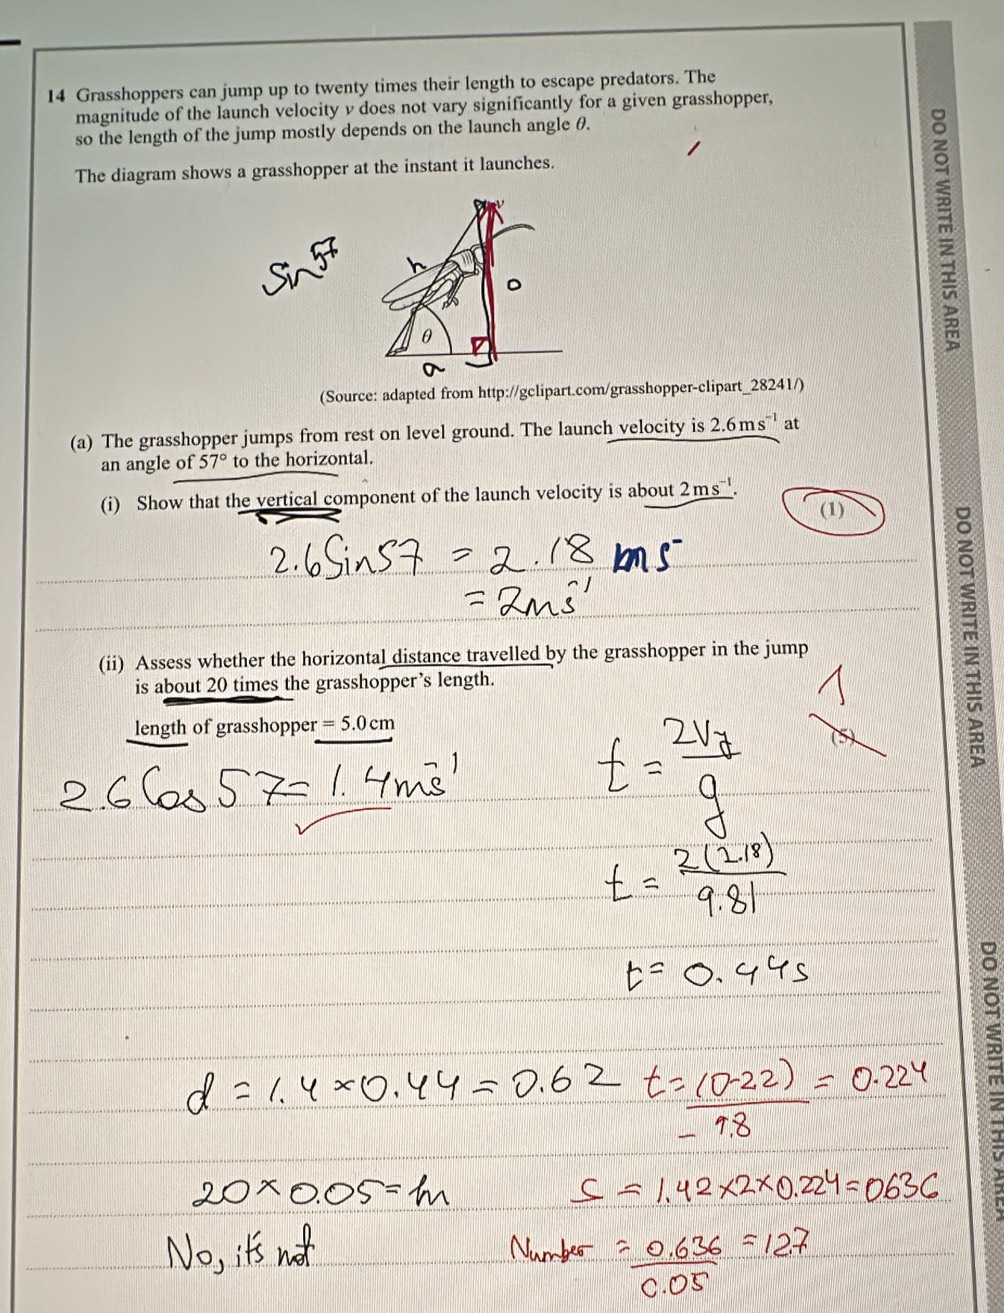 14 Grasshoppers can jump up to twenty times their length to escape predators. The
magnitude of the launch velocity v does not vary significantly for a given grasshopper,
so the length of the jump mostly depends on the launch angle θ.
The diagram shows a grasshopper at the instant it launches.
v
Sin 57
h
o
θ
a
(Source: adapted from http://gclipart.com/grasshopper-clipart_28241/)
(a) The grasshopper jumps from rest on level ground. The launch velocity is 2.6 m s⁻¹ at
an angle of 57° to the horizontal.
(i) Show that the vertical component of the launch velocity is about 2 m s⁻¹.
(1)
2.6 Sin57 = 2.18 ms⁻
= 2ms⁻¹
(ii) Assess whether the horizontal distance travelled by the grasshopper in the jump
is about 20 times the grasshopper's length.
1
(5)
length of grasshopper = 5.0 cm
t = 2Vy / g
2.6 Cos 57 = 1.4ms⁻¹
t = 2(2.18) / 9.81
t = 0.44s
d = 1.4 × 0.44 = 0.62
t = (0-22) / -9.8 = 0.224
20 × 0.05 = 1m
S = 1.42×2×0.224=0636
No, it's not
Number = 0.636 / 0.05 = 12.7
DO NOT WRITE IN THIS AREA
DO NOT WRITE IN THIS AREA
DO NOT WRITE IN THIS AREA